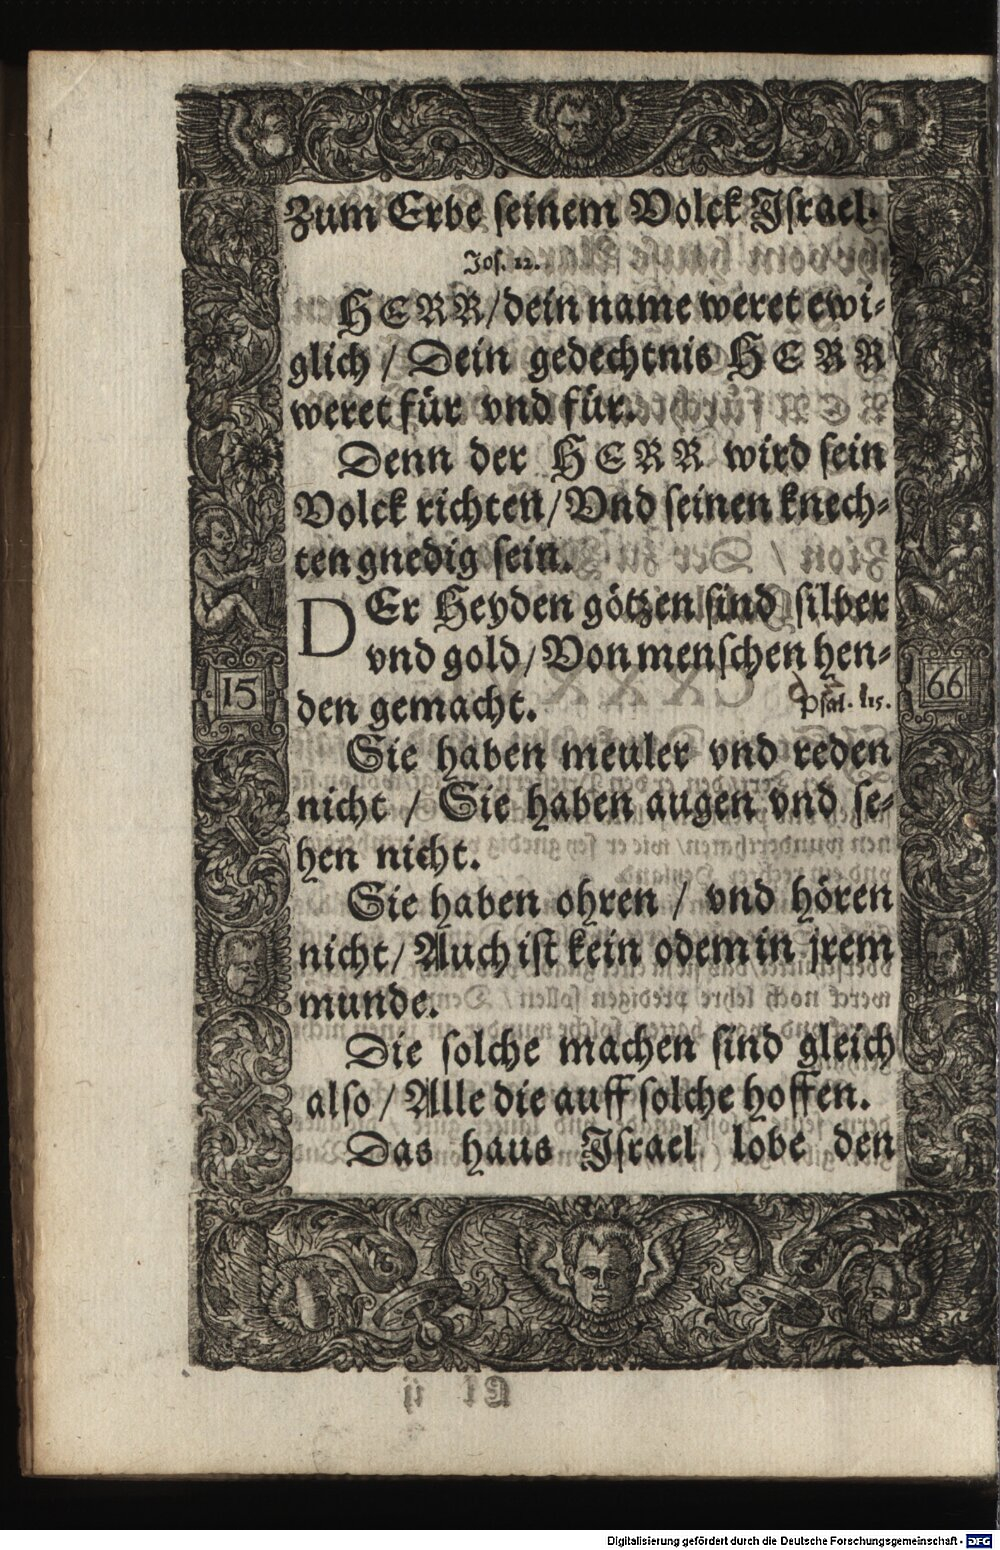 Zum Erbe seinem Volck Jsrael.
Jos. 12.
HERR/ dein name weret ewi-
glich / Dein gedechtnis HERR
weret für vnd für.
Denn der HERR wird sein
Volck richten/ Vnd seinen knech-
ten gnedig sein.
DEr Heyden götzen sind silber
vnd gold/ Von menschen hen-
den gemacht.
Psal. 115.
Sie haben meuler vnd reden
nicht / Sie haben augen vnd se-
hen nicht.
Sie haben ohren / vnd hören
nicht/ Auch ist kein odem in jrem
munde.
Die solche machen sind gleich
also/ Alle die auff solche hoffen.
Das haus Jsrael lobe den
15
66
Digitalisierung gefördert durch die Deutsche Forschungsgemeinschaft - DFG